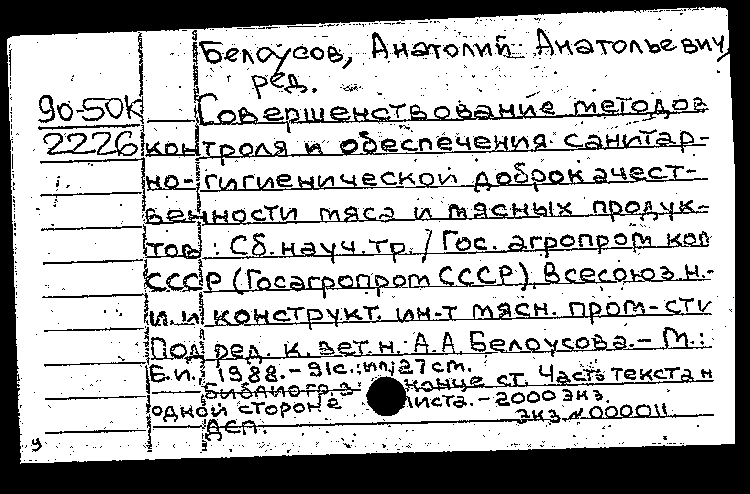 Белоусов, Анатолий Анатольевич,
ред.
90-50К
2226
Совершенствование методов
контроля и обеспечения санитар-
но-гигиенической доброкачест-
венности мяса и мясных продук-
тов : Сб. науч. тр. / Гос. агропром ком
СССР (Госагропром СССР), Всесоюз. н.-
и. и конструкт. ин-т мясн. пром-сти
Под ред. к. вет. н. А.А. Белоусова. - М. :
Б.и., 1988. - 91с. : ил; 27 см.
Библиогр. в конце ст. Часть текста н
одной стороне листа. - 2000 экз.
экз. № 000011.
ДСП.
9